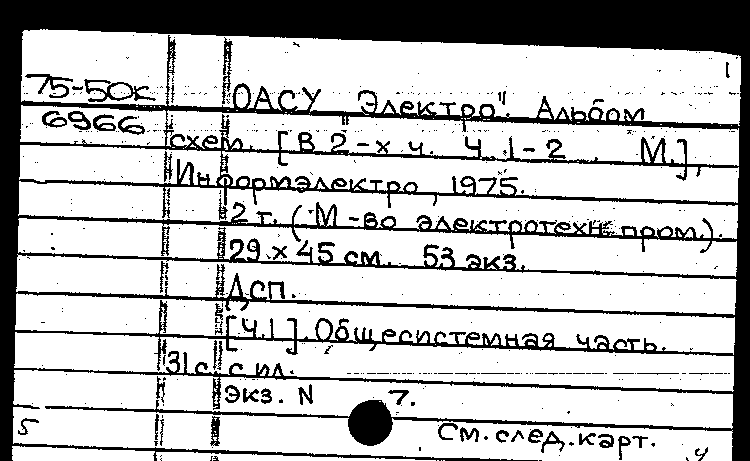 1
75-50к
6966
ОАСУ „Электро". Альбом
схем. [В 2-х ч. Ч. 1-2. М.],
Информэлектро, 1975.
2 т. (М-во электротехн. пром.).
29 х 45 см. 53 экз.
Дсп.
[Ч.1]. Общесистемная часть.
31 с. с ил.
Экз. N 7.
5
См. след. карт.